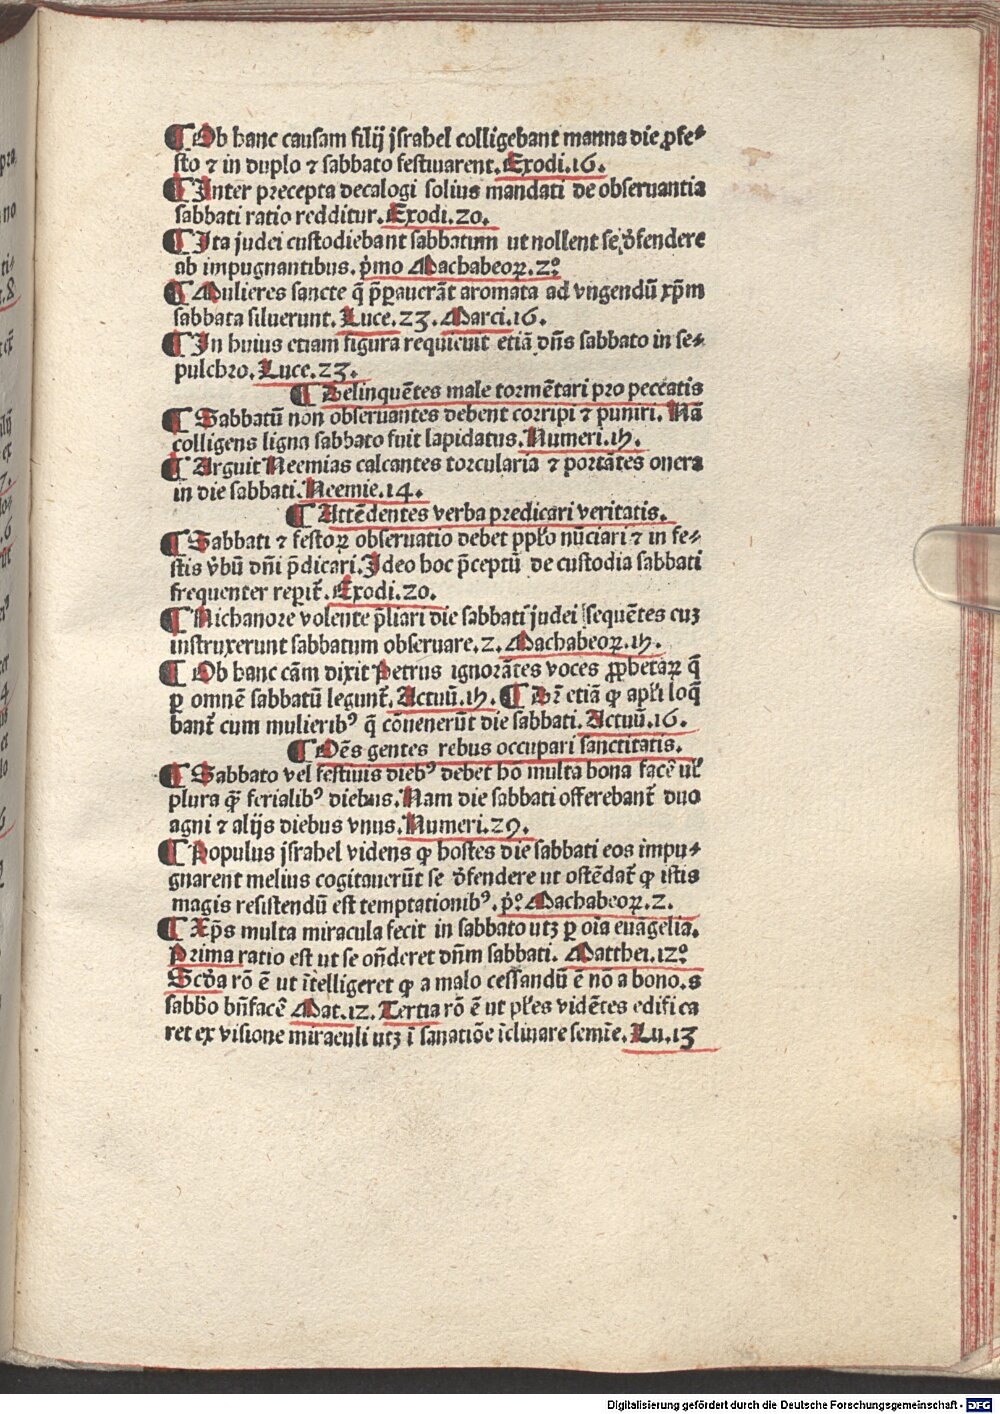 ¶ Ob hanc causam filij jsrahel colligebant manna die ꝓfe⸗
sto ⁊ in duplo ⁊ sabbato festiuarent. Exodi.16.
¶ Inter precepta decalogi solius mandati de obseruantia
sabbati ratio redditur. Exodi.20.
¶ Ita judei custodiebant sabbatum ut nollent se d̄fendere
ab impugnantibus. p̄mo Machabeoꝝ.2°
¶ Mulieres sancte q̄ p̄ꝑauerāt aromata ad vngendū xp̄m
sabbata siluerunt. Luce.23. Marci.16.
¶ In huius etiam figura requieuit etiā dn̄s sabbato in se⸗
pulchro. Luce.23.
¶ Delinquētes male tormētari pro peccatis
¶ Sabbatū non obseruantes debent corripi ⁊ puniri. Nā
colligens ligna sabbato fuit lapidatus. Numeri.15.
¶ Arguit Neemias calcantes torcularia ⁊ portātes onera
in die sabbati. Neemie.14.
¶ Attēdentes verba predicari veritatis.
¶ Sabbati ⁊ festoꝝ obseruatio debet ppl̄o nūciari ⁊ in fe⸗
stis v̄bū dn̄i p̄dicari. Ideo hoc p̄ceptū de custodia sabbati
frequenter reperit̄. Exodi.20.
¶ Nichanore volente p̄liari die sabbati judei sequētes euꝫ
instruxerunt sabbatum obseruare. 2. Machabeoꝝ.15.
¶ Ob hanc cām dixit Petrus ignorātes voces ꝓphetaꝝ q̄
ꝑ omnē sabbatū legunt̄. Actuū.15. ¶ Dr̄ etiā ꝙ apl̄i loq̄
bant̄ cum mulieribꝰ q̄ cōuenerūt die sabbati. Actuū.16.
¶ Oēs gentes rebus occupari sanctitatis.
¶ Sabbato vel festiuis diebꝰ debet hō multa bona facē ul̄
plura q̄ꝫ ferialibꝰ diebus. Nam die sabbati offerebant̄ duo
agni ⁊ alijs diebus vnus. Numeri.29.
¶ Populus jsrahel videns ꝙ hostes die sabbati eos impu⸗
gnarent melius cogitauerūt se d̄fendere ut ostēdat̄ ꝙ istis
magis resistendū est temptationibꝰ. p̄° Machabeoꝝ.2.
¶ Xp̄s multa miracula fecit in sabbato utꝫ ꝑ oīa euāgelia.
Prima ratio est ut se on̄deret dn̄m sabbati. Matthei.12°
Scd̄a rō ē ut ītelligeret ꝙ a malo cessandū ē nō a bono. s
sabb̄o bn̄facē Mat.12. Tertia rō ē ut pl̄es vidētes edifica
ret ex visione miraculi utꝫ ī sanatiōe īclinare semīe. Lu.13
Digitalisierung gefördert durch die Deutsche Forschungsgemeinschaft - DFG